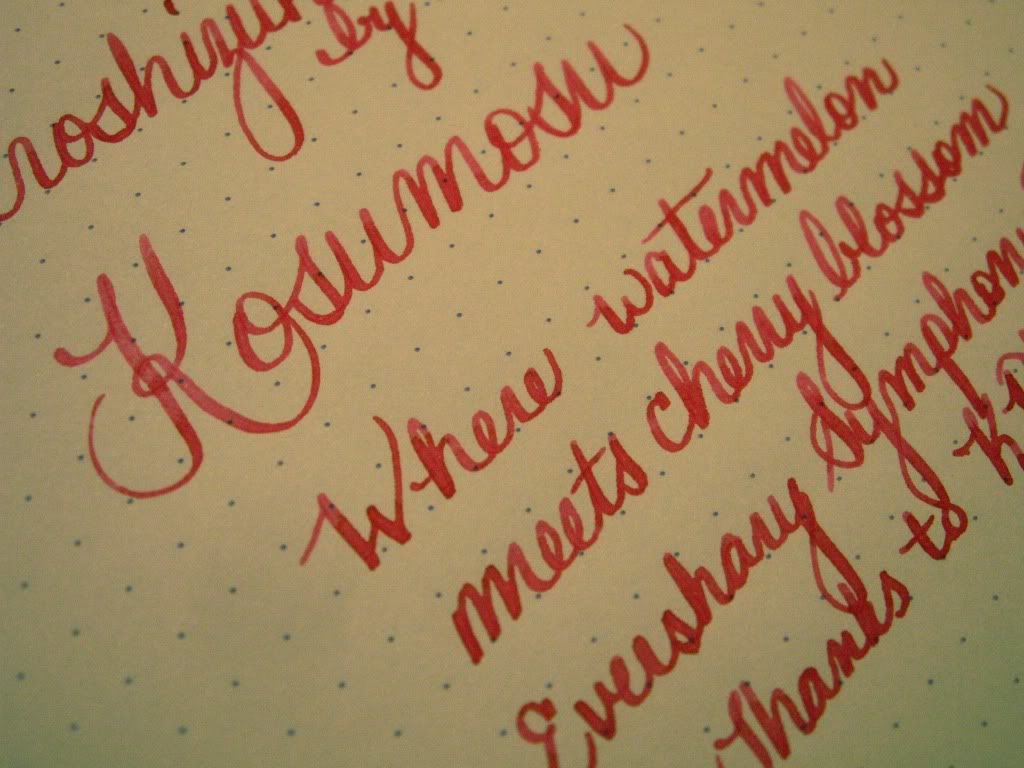 roshizu
by
Kosumosu
Where watermelon
meets cherry blossom
Eversharp Symphony
Thanks to Ki